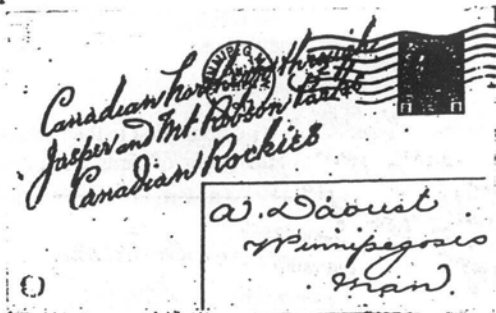 Canadian Northern through
Jasper and Mt. Robson Parks
Canadian Rockies
WINNIPEG
A. Daoust.
Winnipegosis
Man.